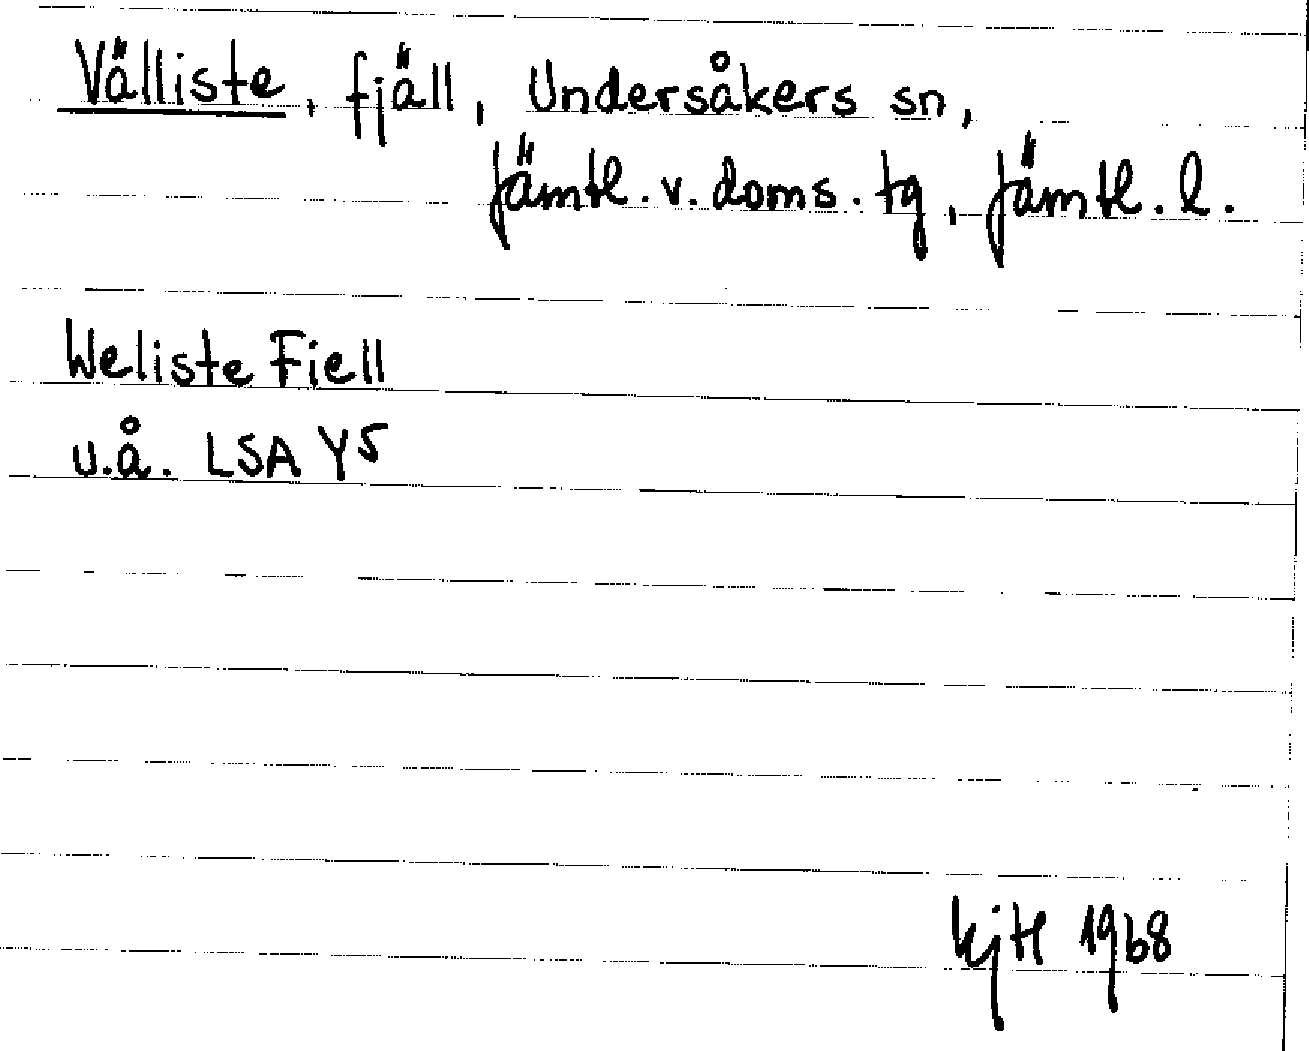 Välliste, fjäll, Undersåkers sn,
Jämtl. v. doms. tg, Jämtl. l.
Weliste Fiell
u.å. LSA Y5
1968